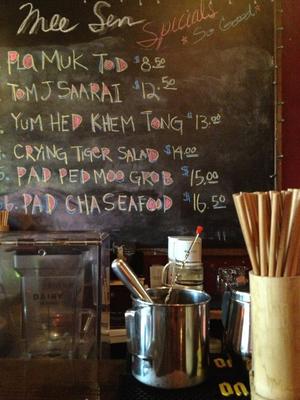 Mee Sen
Specials
*So Good*
PLA MUK TOD $8.50
TOM J SAARAI $12.50
YUM HED KHEM TONG $13.00
4. CRYING TIGER SALAD $14.00
5. PAD PED MOO GROB $15.00
6. PAD CHA SEAFOOD $16.50
DAIRY